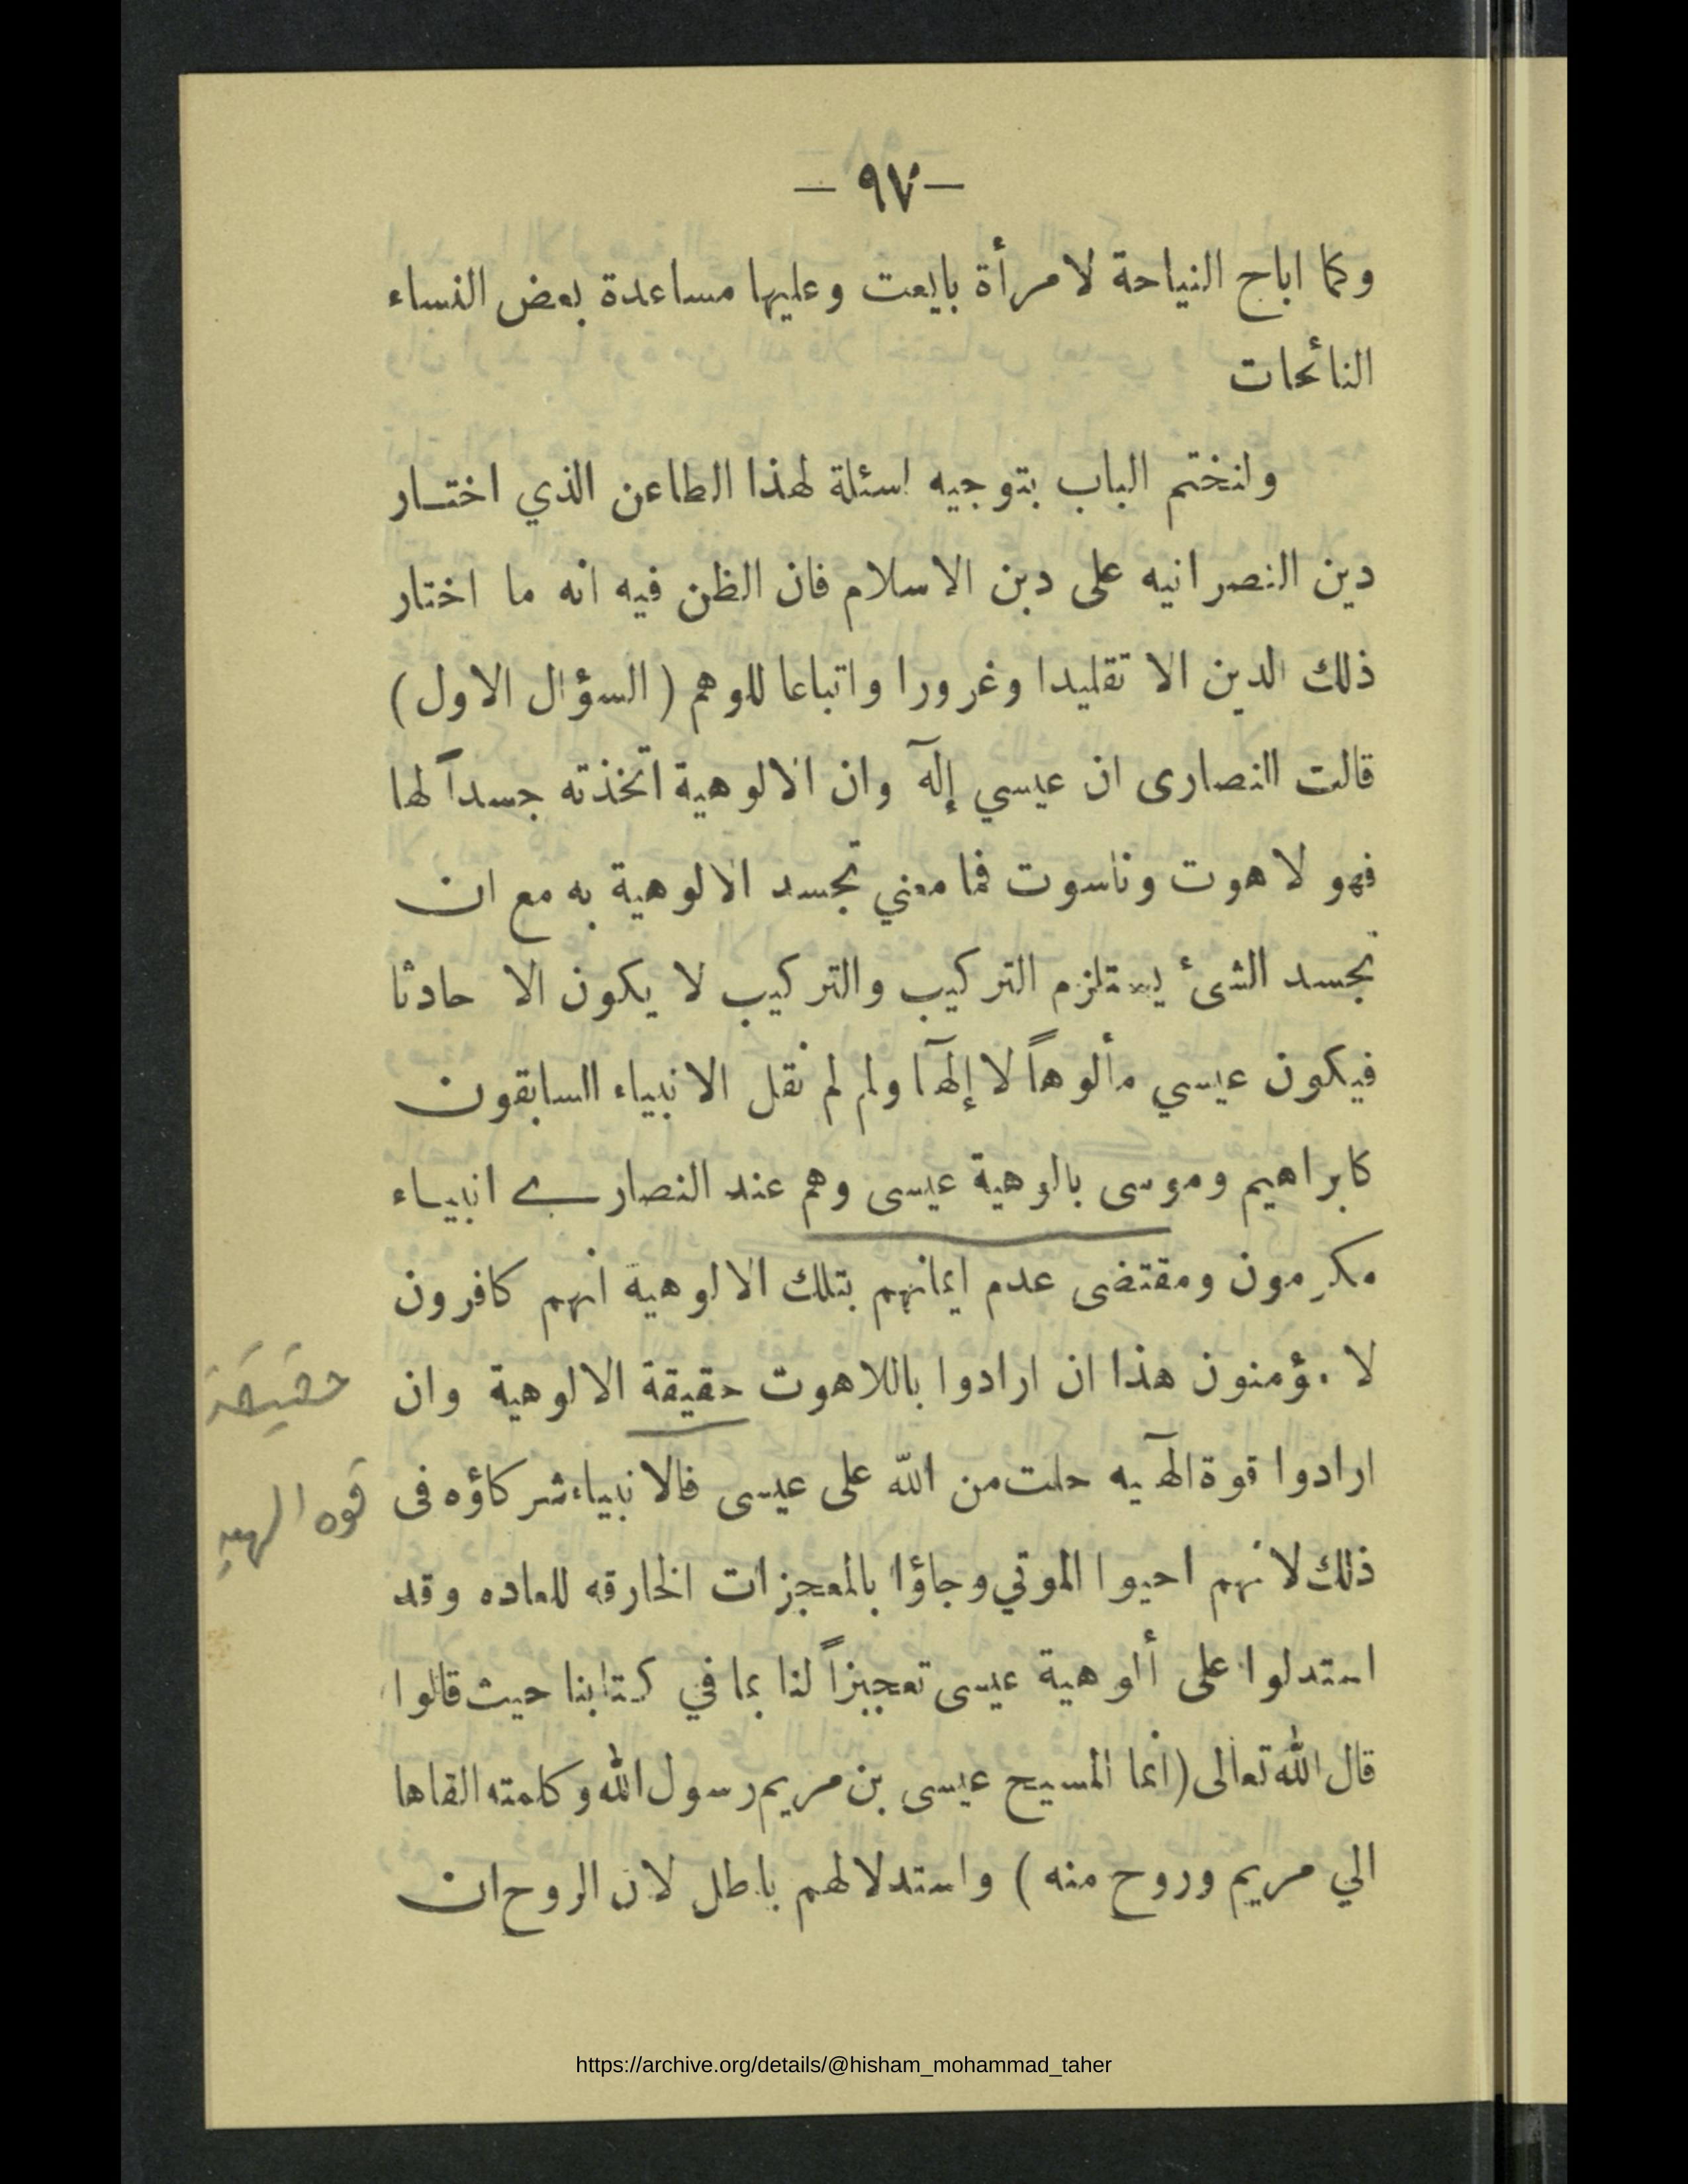 — ٩٧ —
وكما اباح النياحة لامرأة بايعت وعليها مساعدة بعض النساء
النائحات
ولنختم الباب بتوجيه اسئلة لهذا الطاعن الذي اختار
دين النصرانيه على دين الاسلام فان الظن فيه انه ما اختار
ذلك الدين الا تقليدا وغرورا واتباعا للوهم (السؤال الاول)
قالت النصارى ان عيسي إلٓه وان الالوهية اتخذته جسداً لها
فهو لاهوت وناسوت فما معني تجسد الالوهية به مع ان
تجسد الشئ يستلزم التركيب والتركيب لا يكون الا حادثا
فيكون عيسي مألوهاً لا إلهٓا ولم لم تقل الانبياء السابقون
كابراهيم وموسى بالوهية عيسى وهم عند النصارے انبياء
مكرمون ومقتضى عدم ايمانهم بتلك الالوهية انهم كافرون
لا مؤمنون هذا ان ارادوا باللاهوت حقيقة الالوهية وان
حقيقة
ارادوا قوة الهٓيه حلت من الله على عيسى فالانبياء شركاؤه فى
قوه الهيه
ذلك لانهم احيوا الموتي وجاؤا بالمعجزات الخارقه للعاده وقد
استدلوا على ألوهية عيسى تعجيزاً لنا بما في كتابنا حيث قالوا
قال الله تعالى (انما المسيح عيسى بن مريم رسول الله وكلمته القاها
الي مريم وروح منه) واستدلالهم باطل لان الروح ان
https://archive.org/details/@hisham_mohammad_taher